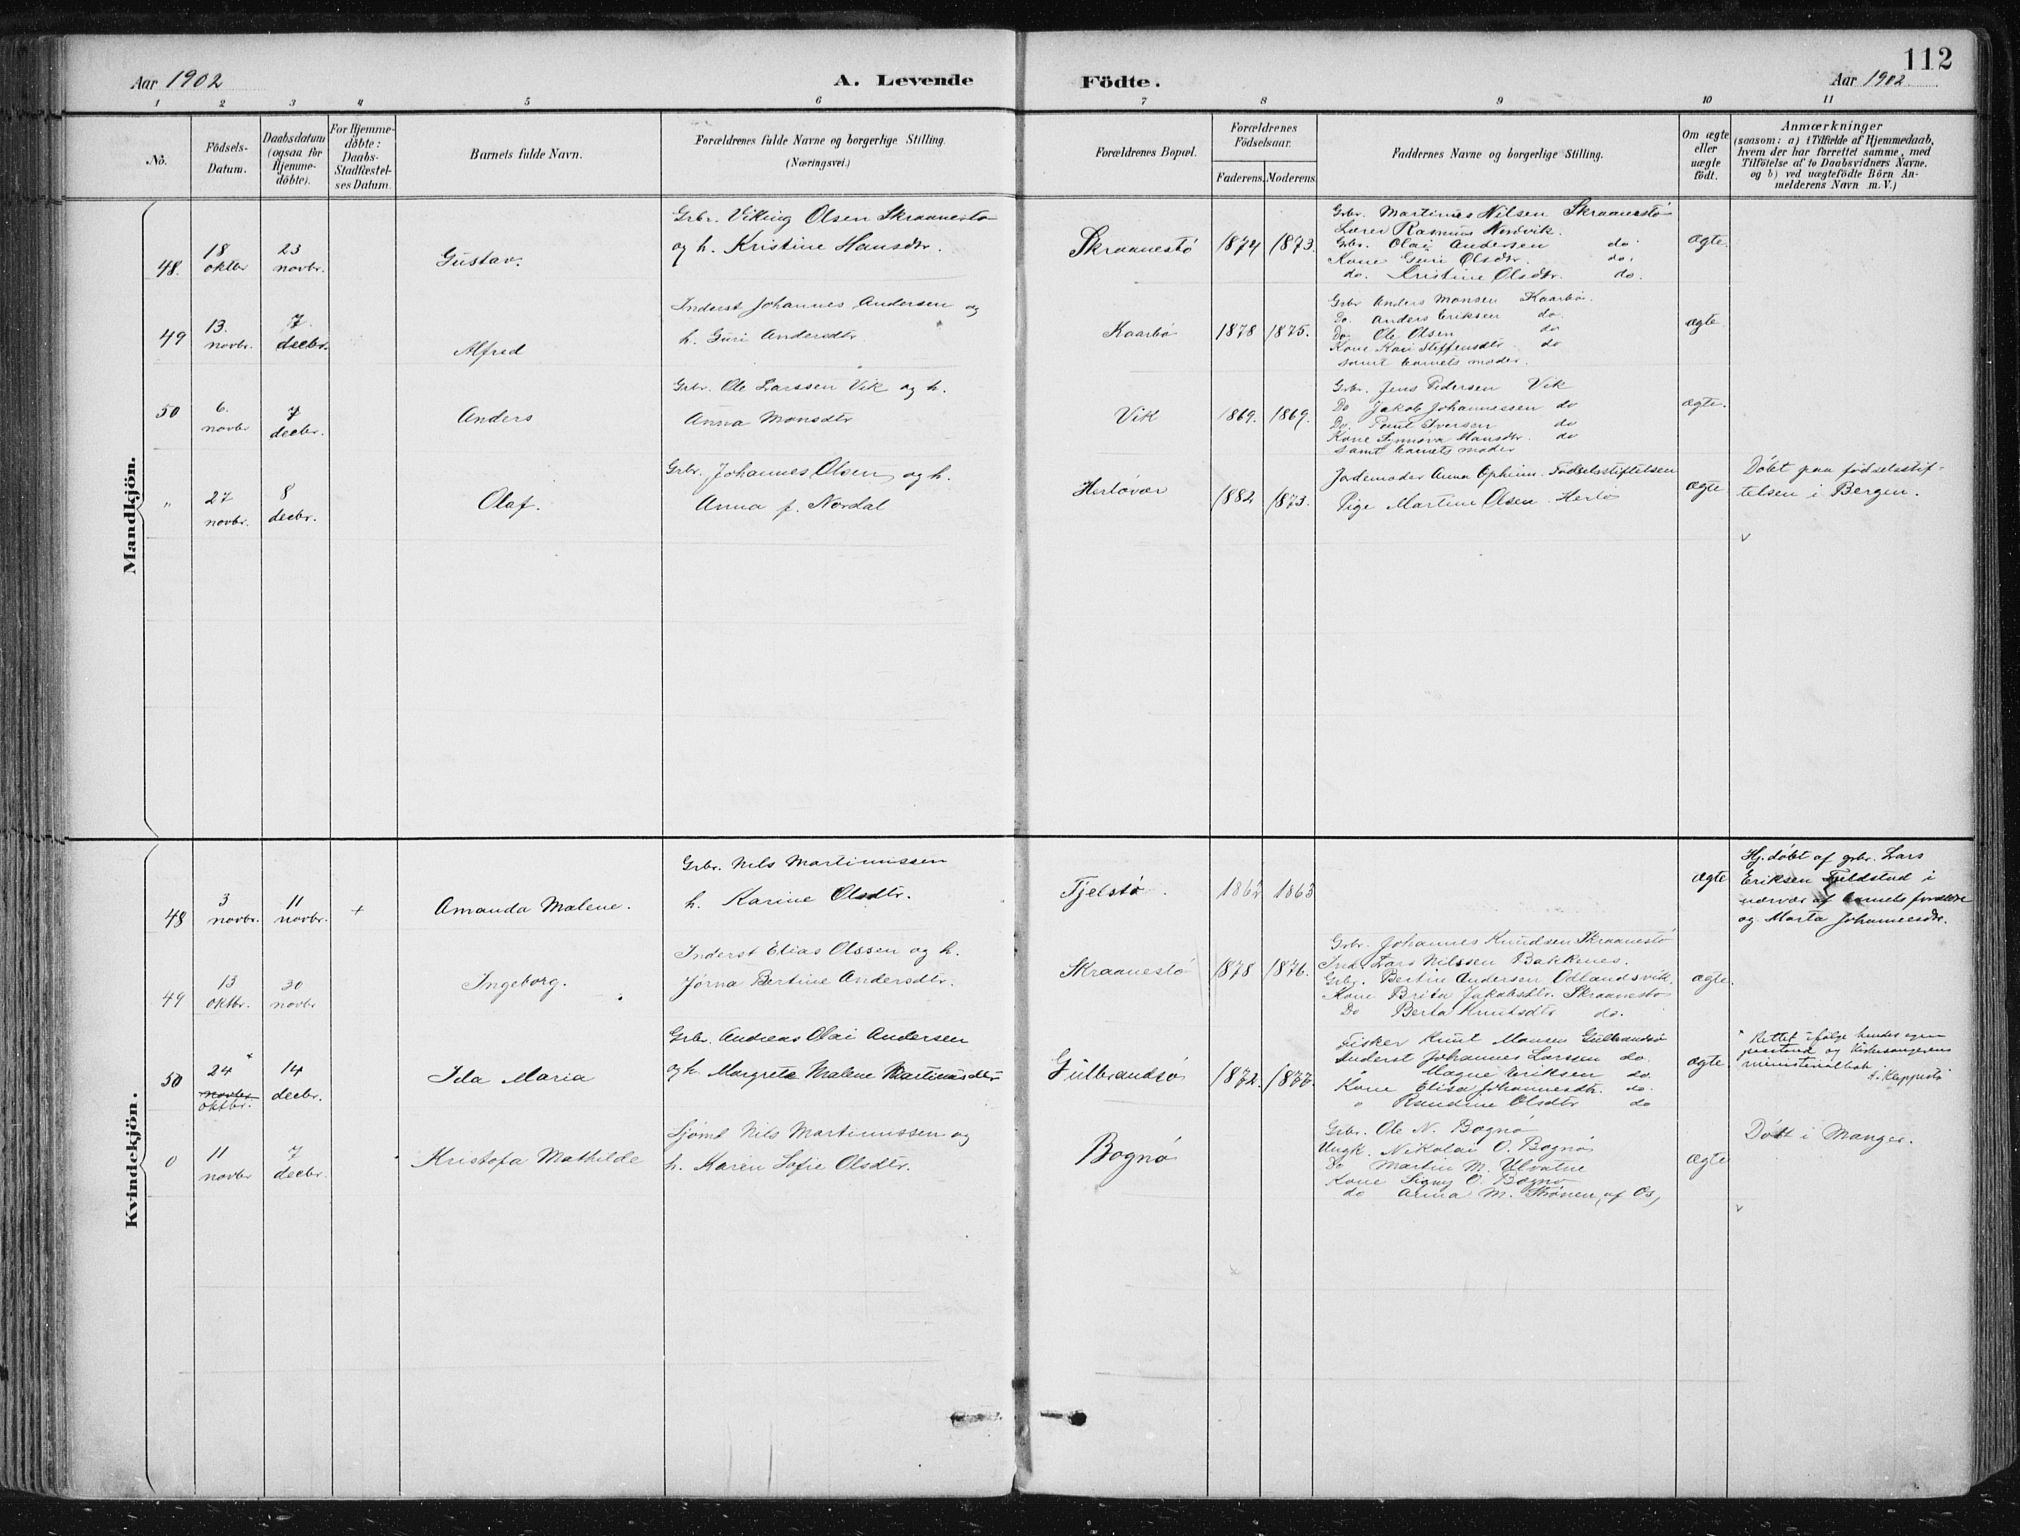 112
Aar 1902
A. Levende
Födte.
Aar 1902
1 2 3 4 5 6 7 8 9 10 11
No.
Födsels-
Datum.
Daabsdatum
(ogsaa for
Hjemme-
döbte).
For Hjemme-
döbte:
Daabs-
Stadfæstel-
ses Datum.
Barnets fulde Navn.
Forældrenes fulde Navne og borgerlige Stilling.
(Næringsvei.)
Forældrenes Bopæl.
Forældrenes
Födselsaar.
Faderens. Moderens.
Faddernes Navne og borgerlige Stilling.
Om ægte
eller
uægte
födt.
Anmærkninger
(saasom: a) i Tilfælde af Hjemmedaab,
hvem der har forrettet samme, med
Tilföielse af to Daabsvidners Navne.
og b) ved uægtefödte Börn An-
melderens Navn m. V.)
Mandkjön.
48.
18
oktbr
23
novbr.
Gustav.
Grbr. Viking Olsen Skraanestø
og h. Kristine Hansdtr.
Skraanestø
1874
1873.
Grbr. Martinus Nilsen Skraanestø
Lærer Rasmus Nordvik.
Grbr. Olai Andersen do
Kone Guri Olsdtr. do.
do. Kristine Olsdtr. do.
ægte.
49
13.
novbr.
7.
decbr.
Alfred
Inderst Johannes Andersen og
h. Guri Andersdtr
Kaarbø
1878
1875.
Grbr Anders Monsen Kaarbø.
Do. Anders Eriksen do.
Do Ole Olsen do
Kone Kari Steffensdtr do
samt barnets moder.
ægte
50
6.
novbr
7
decbr.
Anders
Grbr. Ole Larssen Vik og h.
Anna Monsdtr
Vik
1869.
1869.
Grbr. Jens Pedersen Vik
Do Jakob Johannessen do
Do. Poul Iversen do
Kone Synnøva Hansdtr. do
samt barnets moder
ægte.
"
27
novbr.
8
decbr.
Olaf.
Grbr. Johannes Olsen og h.
Anna f. Nordal
Herløvær
1882
1873.
Jordemoder Anna Opheim. Fødselsstiftelsen
Pige Martine Olsen Herlø
ægte
Döbt paa fødselsstif-
telsen i Bergen.
v
Kvindekjön.
48
3
novbr.
11
novbr.
+
Amanda Malene.
Grbr. Nils Martinussen
h. Karine Olsdtr.
Tjelstø.
1862
1863
ægte
Hj. döbt af grbr. Lars
Eriksen Fjeldstad i
nærvær af barnets forældre
og Marta Johannesdtr.
49
13
oktbr.
30
novbr
Ingeborg.
Inderst Elias Olssen og h.
Jørna Bertine Andersdtr.
Skraanestø
1878
1876.
Grbr. Johannes Knudsen Skraanestø
Ind. Lars Nilssen Bakkenes.
Grbr. Bertin Andersen Odlandsvik.
Kone Brita Jakobsdtr. Skraanestø
Do Berta Knutsdtr do.
ægte.
50
24 *
novbr
oktbr.
14
decbr.
Ida Maria
Grbr. Andreas Olai Andersen
og h. Margrete Malene Martinusdtr
Gulbrandsø
1872.
1877.
Fisker Knut Monsen Gulbrandsø
Inderst Johannes Larssen do.
" Magne Eriksen do.
Kone Elisa Johannesdtr. do.
" Rundine Olsdtr do
ægte.
* Rettet ifølge hendes egen
paastand og Kirkesangerens
ministerialbok
A. Kleppestø
0
11
novbr
7
decbr.
Kristofa Mathilde
Sjømd Nils Martinussen og
h. Karen Sofie Olsdtr.
Bognø
Grbr. Ole N. Bognø
Ungk. Nikolai O. Bognø
Do Martin M. Ulvatne
Kone Signy O. Bognø
do Anna M. Strønen, af Os,
ægte
Døbt i Manger.
v